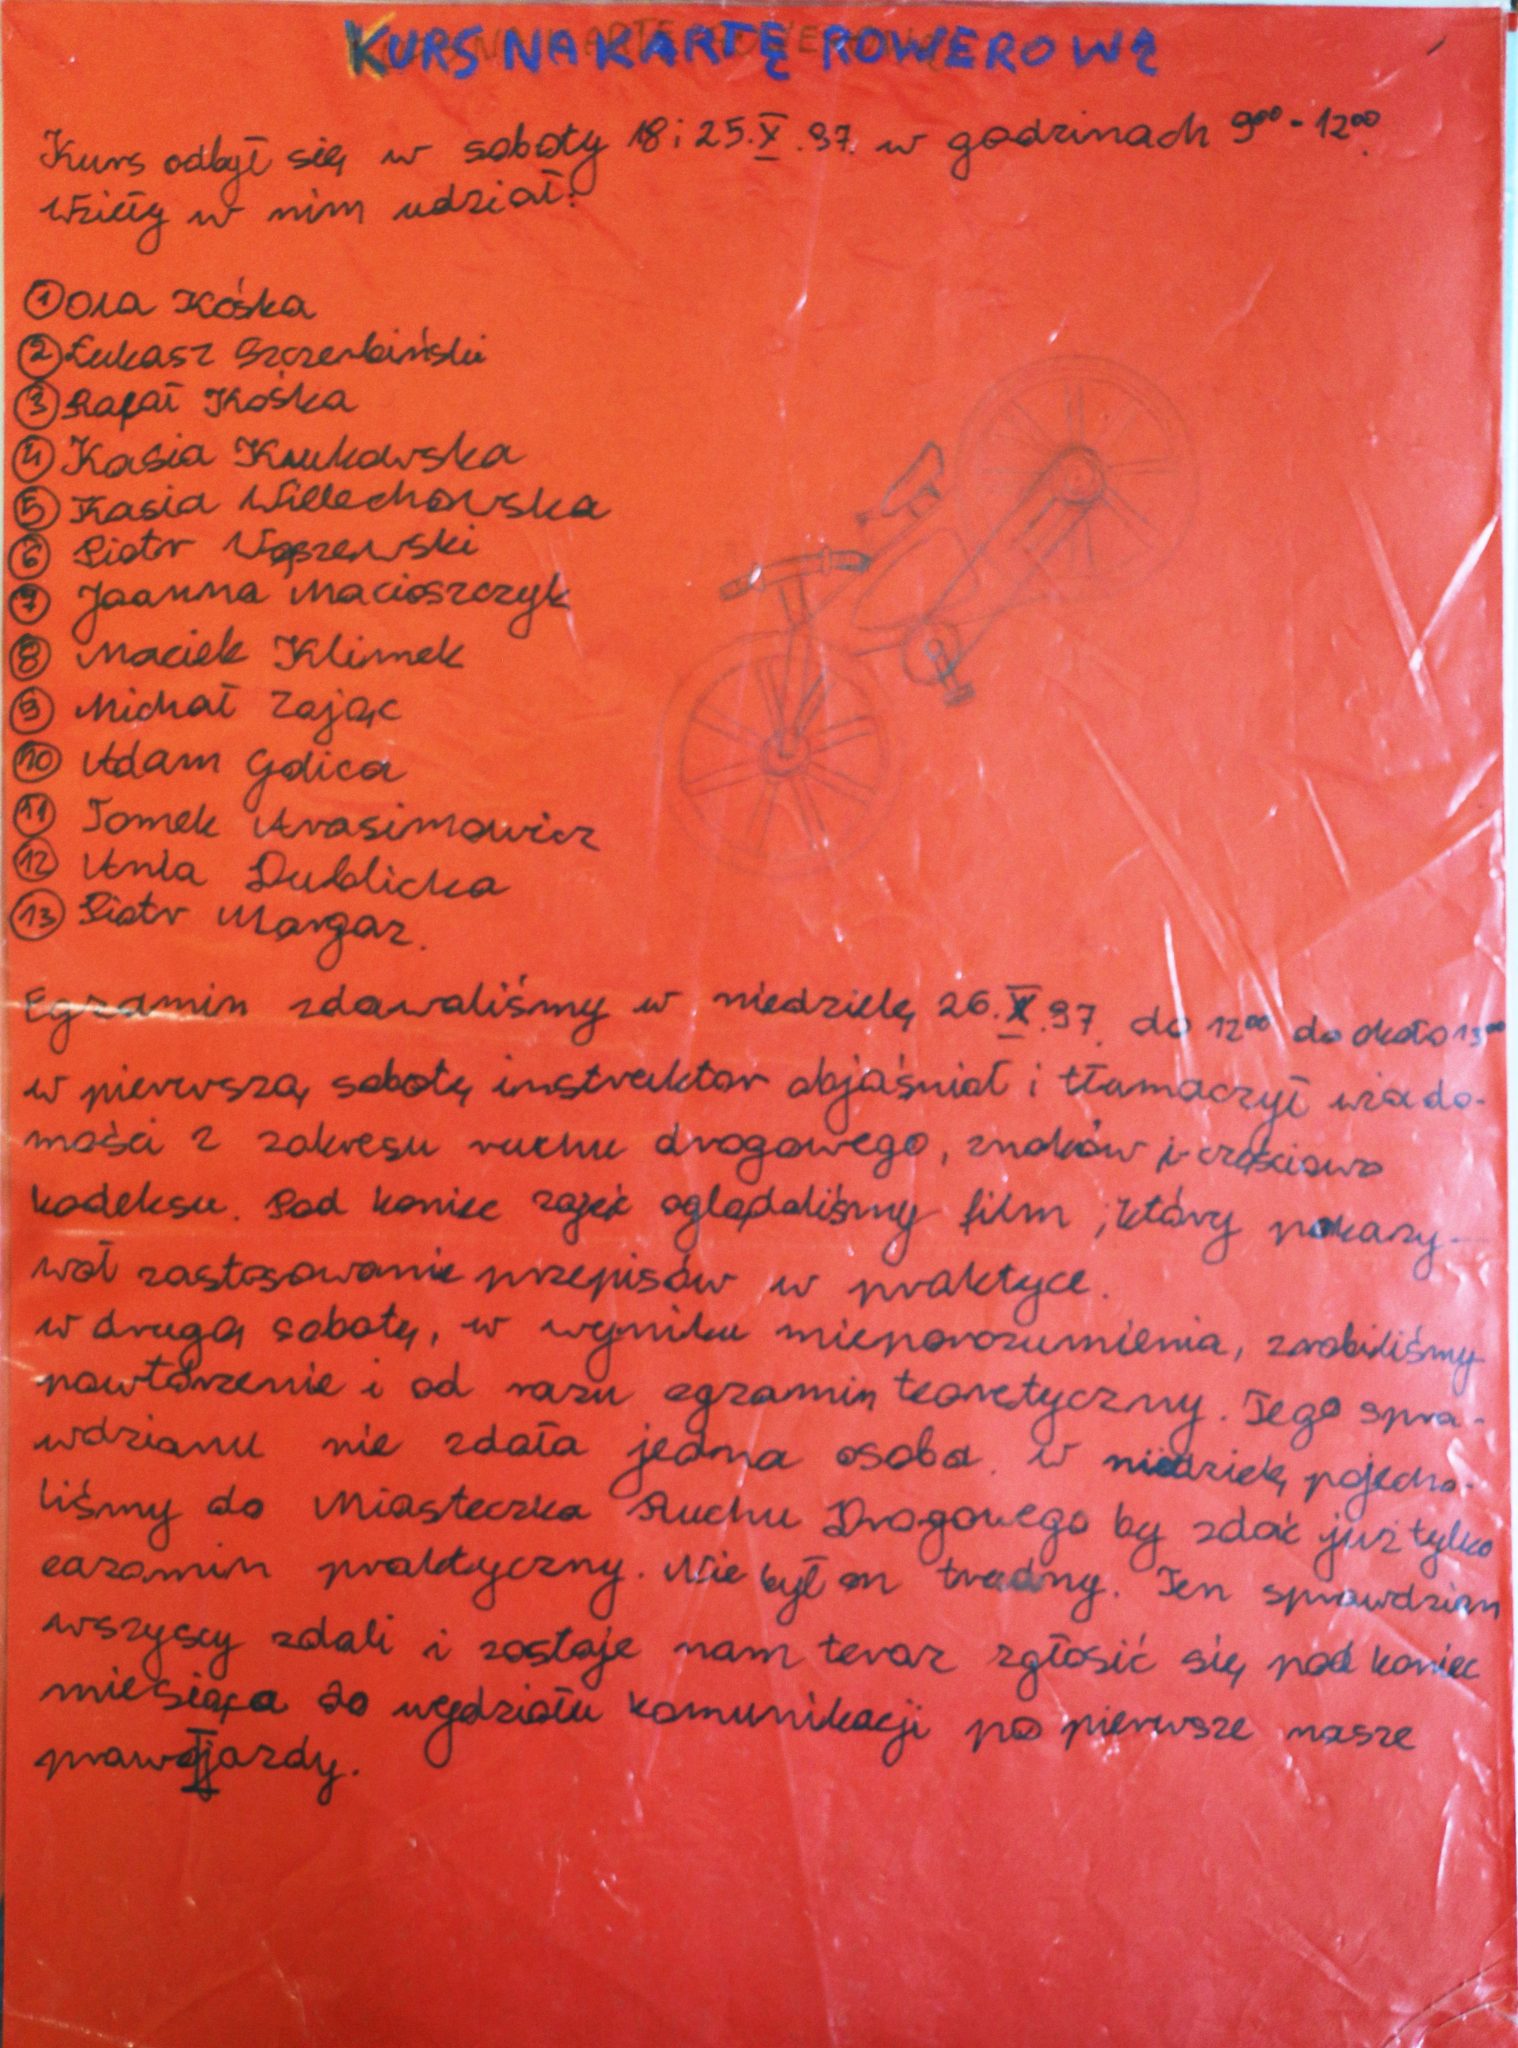 KURS NA KARTĘ ROWEROWĄ
Kurs odbył się w soboty 18 i 25.X.97. w godzinach 9⁰⁰-12⁰⁰.
Wzięły w nim udział:
① Ola Kośka
② Łukasz Szczerbiński
③ Rafał Kośka
④ Kasia Krukowska
⑤ Kasia Willechowska
⑥ Piotr Wąszewski
⑦ Joanna Macioszczyk
⑧ Maciek Klimek
⑨ Michał Zając
⑩ Adam Golica
⑪ Tomek Arasimowicz
⑫ Ania Dublicka
⑬ Piotr Margaz.
Egzamin zdawaliśmy w niedzielę 26.X.97. do 12⁰⁰ do około 13⁰⁰
w pierwszą sobotę instruktor objaśniał i tłumaczył wiado-
mości z zakresu ruchu drogowego, znaków i częściowo
kodeksu. Pod koniec zajęć oglądaliśmy film, który pokazy-
wał zastosowanie przepisów w praktyce.
w drugą sobotę, w wyniku nieporozumienia, zrobiliśmy
powtórzenie i od razu egzamin teoretyczny. Tego spra-
wdzianu nie zdała jedna osoba. W niedzielę pojecha-
liśmy do Miasteczka Ruchu Drogowego by zdać już tylko
egzamin praktyczny. Nie był on trudny. Ten sprawdzian
wszyscy zdali i zostaje nam teraz zgłosić się pod koniec
miesiąca do wydziału komunikacji po pierwsze nasze
prawo jazdy.